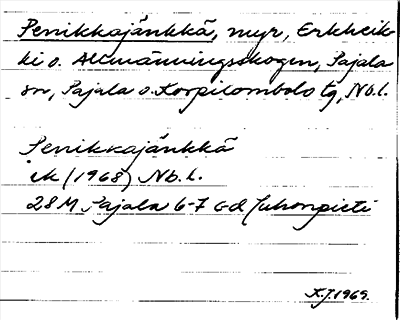 Penikkajänkkä, myr, Erkheik-
ki o. Allmänningsskogen, Pajala
sn, Pajala o. Korpilombolo tg, Nb.l.
Penikkajänkkä
ek (1968) Nb.l.
28M Pajala 6-7 cd Juhonpieti
K.J. 1969.